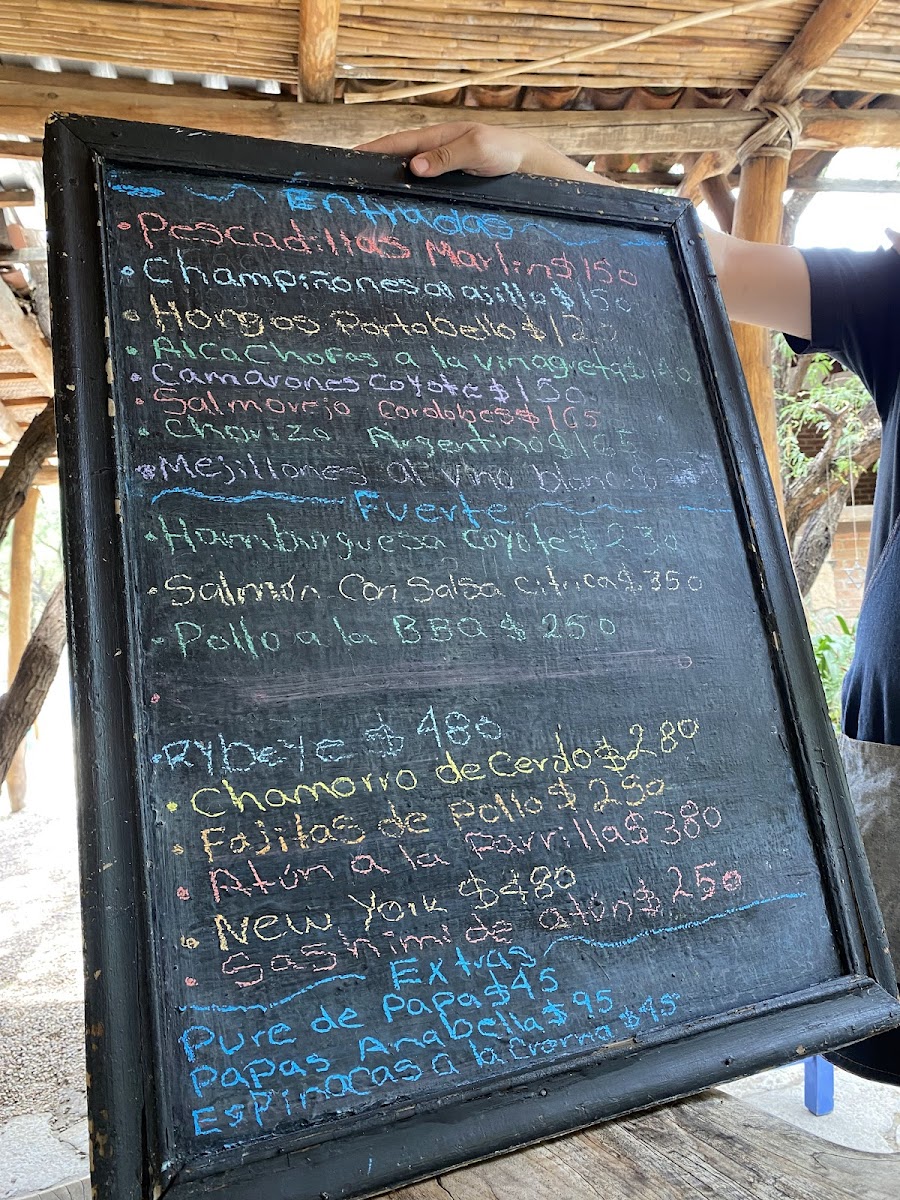 Entradas
• Pescadillas Marlin $150
• Champiñones al ajillo $150
• Hongos Portobello $120
• Alcachofas a la vinagreta $140
• Camarones Coyote $150
• Salmorejo Cordobes $165
• Chorizo Argentino $165
• Mejillones al vino blanco $
Fuerte
• Hamburguesa Coyote $230
• Salmón Con Salsa Citrica $350
• Pollo a la BBQ $250
• Rybeye $480
• Chamorro de Cerdo $280
• Fajitas de Pollo $250
• Atún a la Parrilla $380
• New York $480
• Sashimi de atún $250
Extras
Pure de Papa $45
Papas Anabella $95
Espinacas a la Crema $45